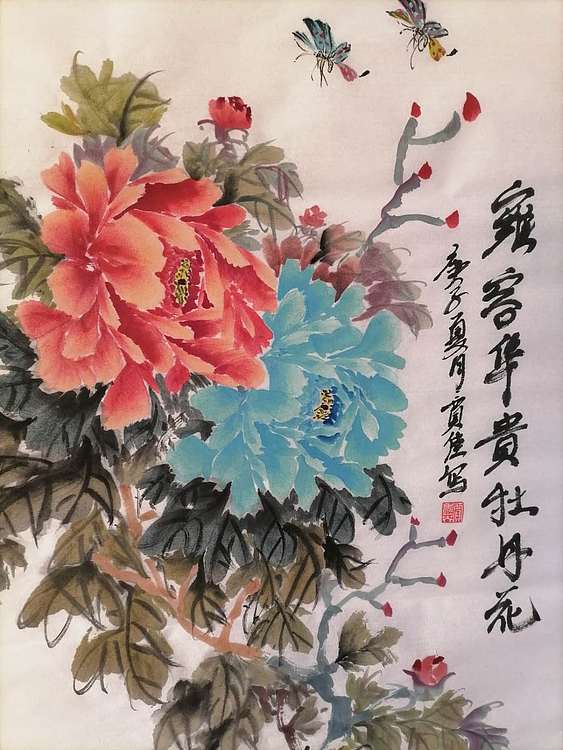 雍容華貴牡丹花
庚子夏月佳写